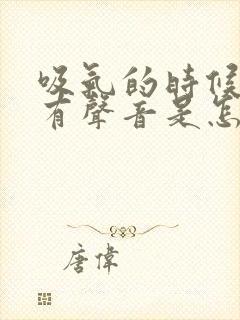 吸氣的時候
有聲音是怎
唐偉